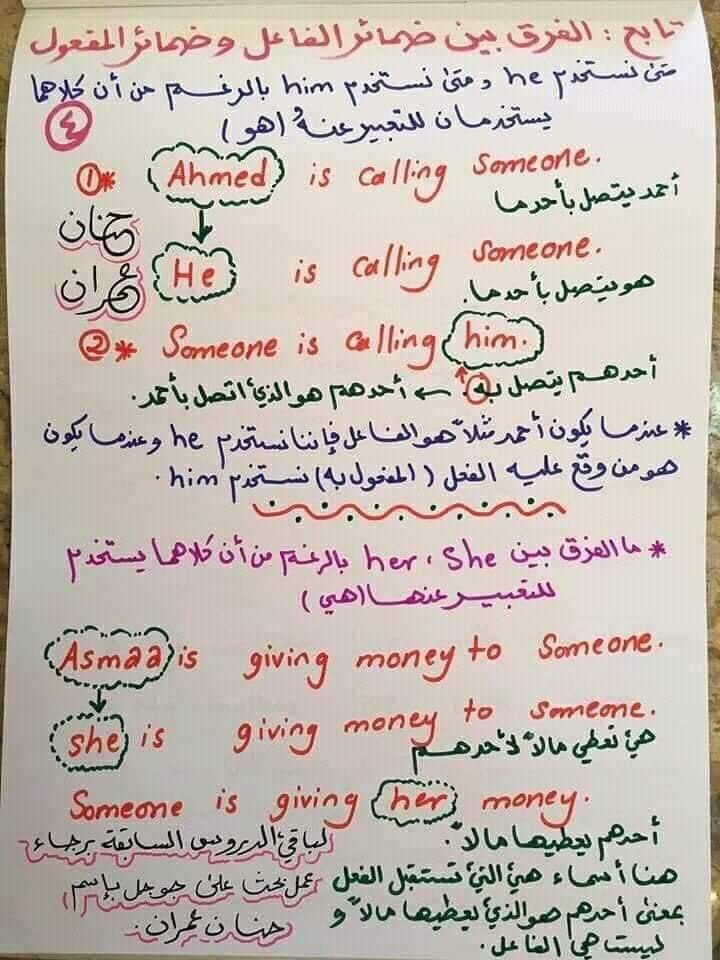 تابع : الفرق بين ضمائر الفاعل وضمائر المفعول
متى نستخدم he ومتى نستخدم him بالرغم من أن كلاهما
يستخدمان للتعبير عنه (هو)
٤
①* Ahmed is calling Someone.
أحمد يتصل بأحدما
حنان
عمران
He is calling Someone.
هو يتصل بأحدما.
②* Someone is calling him.
أحدهم يتصل به. ← أحدهم هو الذي اتصل بأحمد.
* عندما يكون أحمد مثلاً هو الفاعل فإننا نستخدم he وعندما يكون
هو من وقع عليه الفعل (المفعول به) نستخدم him.
* ما الفرق بين she ، her بالرغم من أن كلاهما يستخدم
للتعبير عنها (هي)
Asmaa is giving money to Someone.
she is giving money to someone.
هي تعطي مالاً لأحدهم
Someone is giving her money.
أحدهم يعطيها مالاً.
هنا أسماء هي التي تستقبل الفعل
بمعنى أحدهم هو الذي يعطيها مالاً و
ليست هي الفاعل.
لباقي الدروس السابقة برجاء
عمل بحث على جوجل بإسم
حنان عمران.